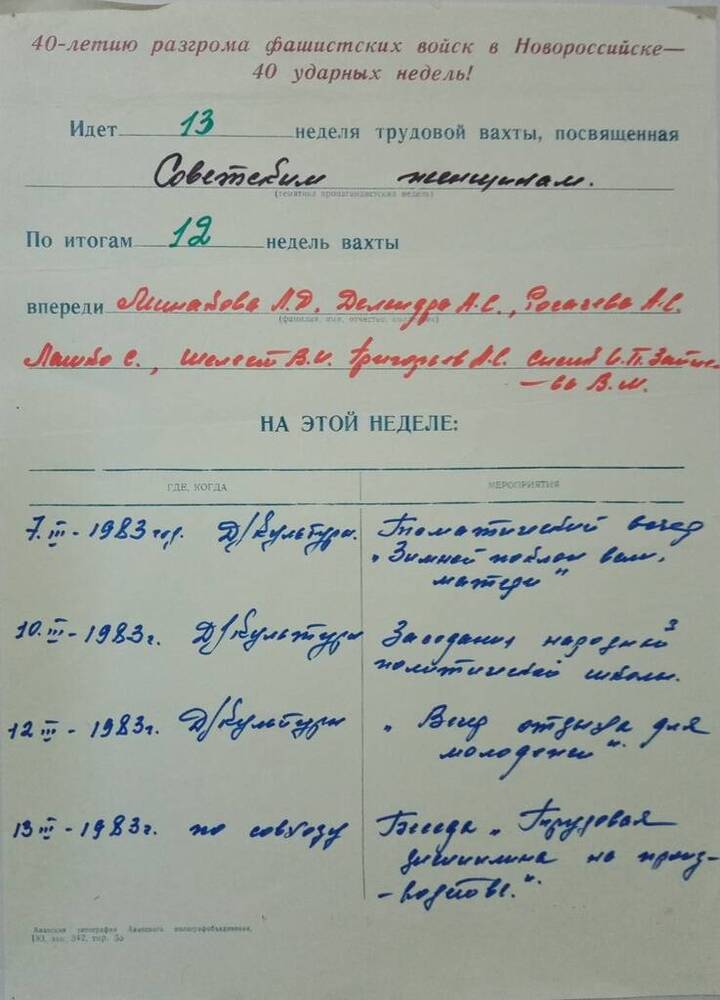 40-летию разгрома фашистских войск в Новороссийске—
40 ударных недель!
Идет 13 неделя трудовой вахты, посвященная
Советским женщинам.
(тематика пропагандистской недели)
По итогам 12 недель вахты
впереди Минакова Л.Д. А.С., Росачева А.С.
(фамилия, имя, отчество,
Лашко С., Шелест В.И. Григорьев А.С. С.П. Зайце-
-ва В.М.
НА ЭТОЙ НЕДЕЛЕ:
ГДЕ, КОГДА МЕРОПРИЯТИЯ
7.III-1983 год. Д/Культуры. Тематический вечер
„Зимной поклон вам,
матери"
10.III-1983г. Д/Культуры Заседания народной
политической школы.
12 III-1983г. Д/Культуры „Вечер отдыха для
молодежи".
13 III-1983г. по совхозу Беседа „Трудовая
дисциплина на произ-
-водстве."
Анапская типография Анапского полиграфобъединения,
зак. 342, тир.